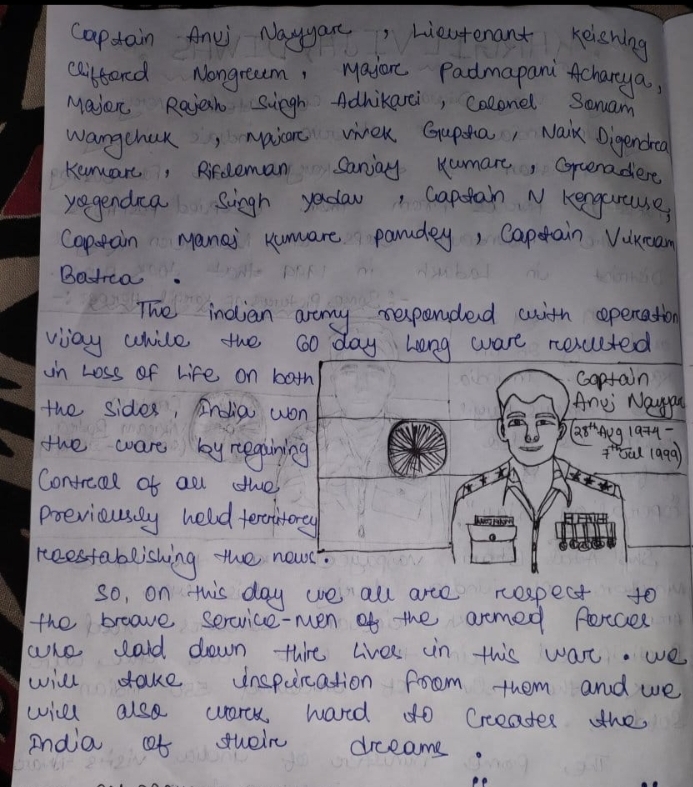 Captain Anuj Nayyar, Lieutenant Keishing
Clifford Nongrum, Major Padmapani Acharya,
Major Rajesh Singh Adhikari, Colonel Sonam
Wangchuk, Major Vivek Gupta, Naik Digendra
Kumar, Rifleman Sanjay Kumar, Grenadier
Yogendra Singh Yadav, Captain N Kenguruse,
Captain Manoj Kumar Pandey, Captain Vikram
Batra.
The indian army responded with operation
vijay while the 60 day Long war resulted
in Loss of Life on both
the sides, India won
the war by regaining
Control of all the
Previously held territory
reestablishing the news.
So, on this day we all are respect to
the brave service-men of the armed forces
who laid down thire Lives in this war. we
will take inspiration from them and we
will also work hard to Creates the
India of their dreams.
Captain
Anuj Nayyar
(28th Aug 1974-
7th Jul 1999)